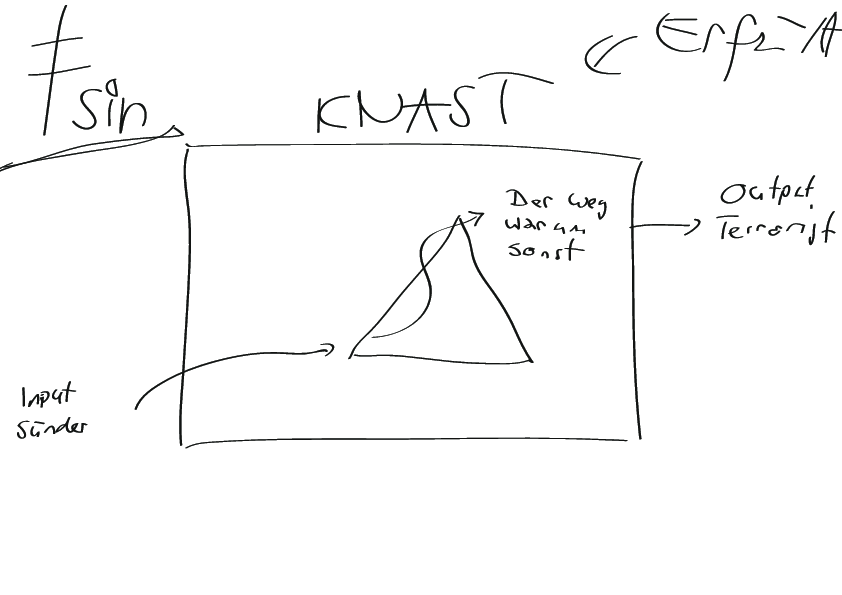 sin
KNAST
Der weg
warum
sonst
Output
Terrorist
Input
Sünder